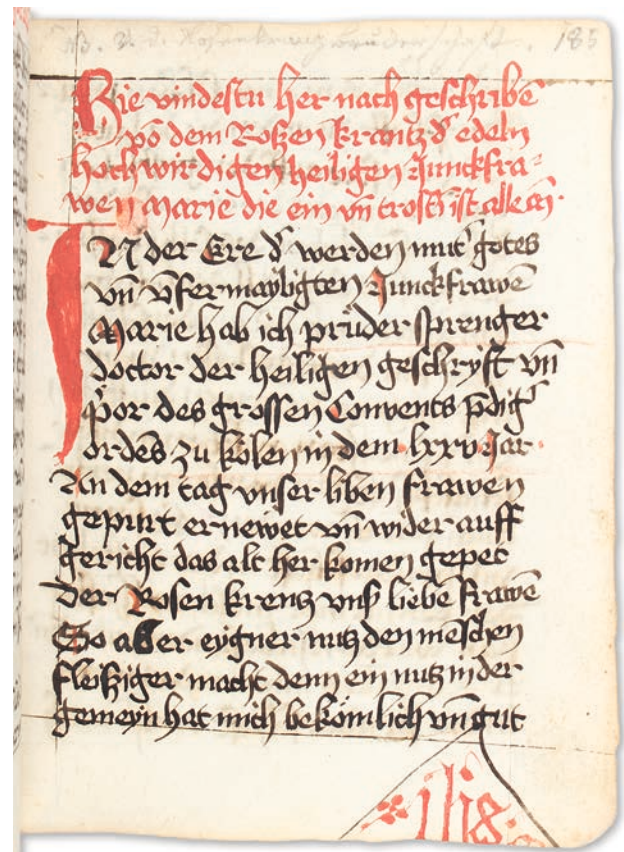 B. V. d. Rosenkranzbruderschaft. 185
Hie vindestu her nach geschribē
vō dem Roßen krantz d̓ edeln
hoch wirdigen heiligen Junckfra-
wen Marie die ein vn̄ trost ist allem.
IN der Ere d̓ werden mut̓ gotes
vn̄ v̄fermayligten Junckfrawē
Marie hab ich prüder sprenger
doctor der heiligen geschryft vn̄
p̓or des grossen Convents p̄dig̓
ordēs zu kölen in dem lxxv Jar
An dem tag vnser liben frawen
gepurt ernewet vn̄ wider auff
gericht das alt her komen gepet
der Rosen krencz vnß liebē Frawē
So aber eygner nutz den mēschen
fleißiger macht denn ein nutz in der
gemeyn hat mich bekömlich vn̄ gut
ihs